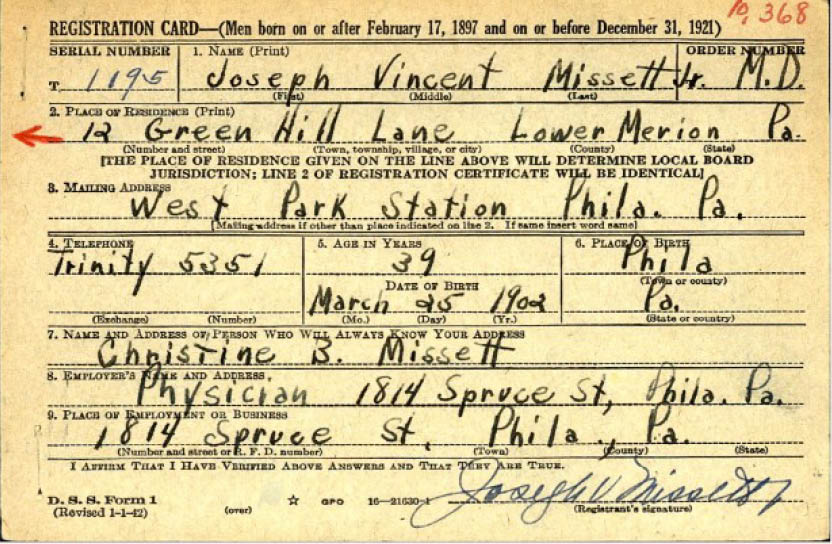 10,368
REGISTRATION CARD—(Men born on or after February 17, 1897 and on or before December 31, 1921)
SERIAL NUMBER 1. NAME (Print) ORDER NUMBER
T 1195 Joseph Vincent Missett Jr. M.D.
(First) (Middle) (Last)
2. PLACE OF RESIDENCE (Print)
12 Green Hill Lane Lower Merion Pa.
(Number and street) (Town, township, village, or city) (County) (State)
[THE PLACE OF RESIDENCE GIVEN ON THE LINE ABOVE WILL DETERMINE LOCAL BOARD
JURISDICTION; LINE 2 OF REGISTRATION CERTIFICATE WILL BE IDENTICAL]
3. MAILING ADDRESS
West Park Station Phila. Pa.
[Mailing address if other than place indicated on line 2. If same insert word same]
4. TELEPHONE 5. AGE IN YEARS 6. PLACE OF BIRTH
Trinity 5351 39 Phila
DATE OF BIRTH (Town or county)
March 25 1902 Pa.
(Exchange) (Number) (Mo.) (Day) (Yr.) (State or country)
7. NAME AND ADDRESS OF PERSON WHO WILL ALWAYS KNOW YOUR ADDRESS
Christine B. Missett
8. EMPLOYER'S NAME AND ADDRESS
Physician 1814 Spruce St, Phila. Pa.
9. PLACE OF EMPLOYMENT OR BUSINESS
1814 Spruce St, Phila., Pa.
(Number and street or R. F. D. number) (Town) (County) (State)
I AFFIRM THAT I HAVE VERIFIED ABOVE ANSWERS AND THAT THEY ARE TRUE.
D. S. S. Form 1 GPO 16—21630-1 Joseph V Missett Jr
(Revised 1-1-42) (over) (Registrant's signature)